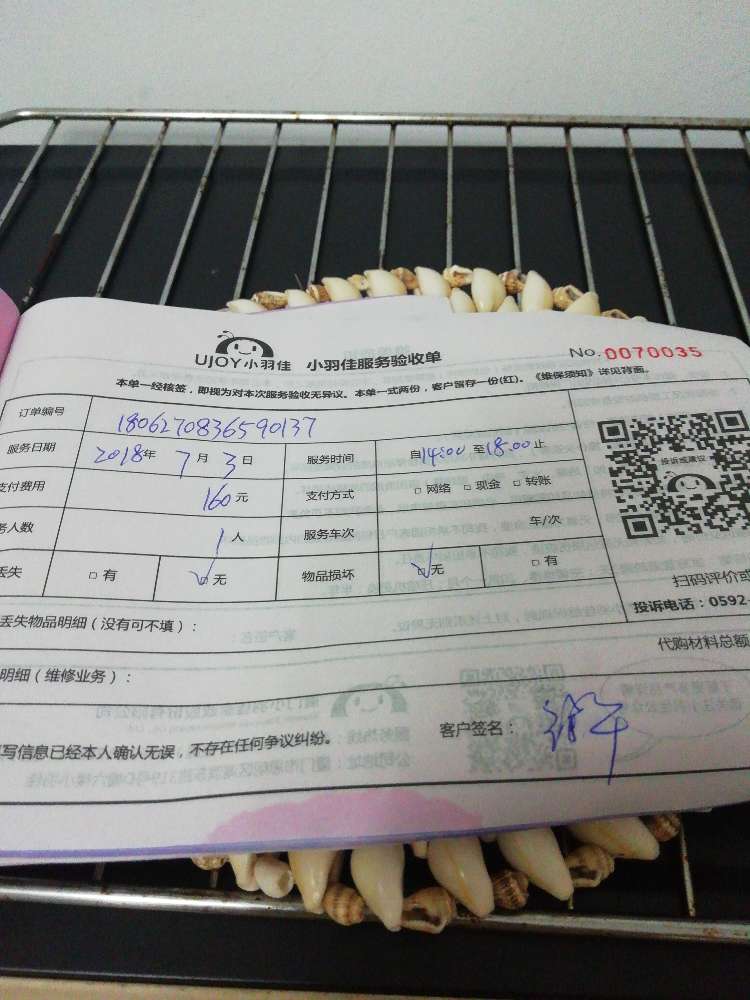 UJOY小羽佳 小羽佳服务验收单 No.0070035
本单一经核签，即视为对本次服务验收无异议。本单一式两份，客户留存一份(红)。《维保须知》详见背面。
订单编号 1806270836590137
服务日期 2018年 7月 3日 服务时间 自14:00 至18:00止
支付费用 160元 支付方式 □网络 □现金 □转账
务人数 1人 服务车次 车/次
丢失 □有 √无 物品损坏 √无 □有
投诉或建议
扫码评价或
投诉电话：0592-
丢失物品明细（没有可不填）：
代购材料总额
明细（维修业务）：
写信息已经本人确认无误，不存在任何争议纠纷。 客户签名：